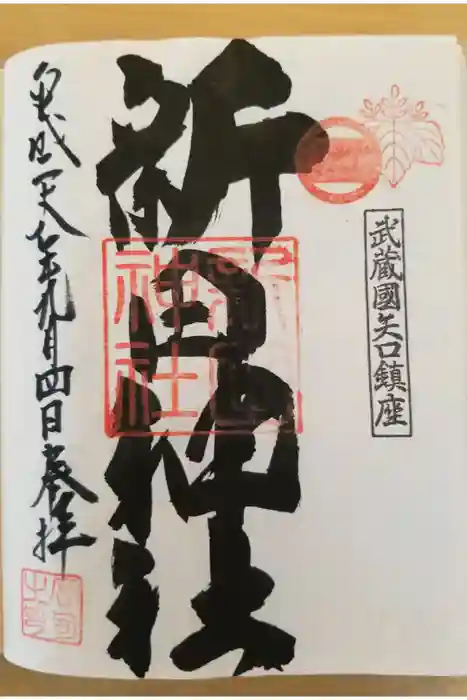 武蔵國矢口鎮座
新田神社
新田神社
平成二十八年九月四日奉拝